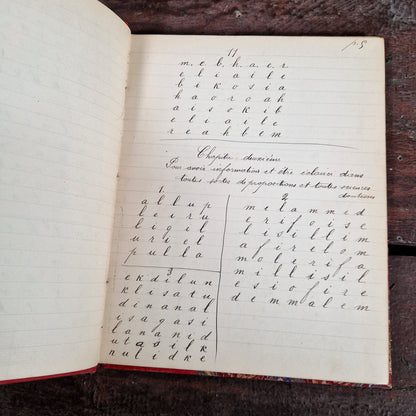 p. 5
11
m. e. b. h. a. e. r
e l i a i l e
b i k o s i a
h a o r o a h
a i s o k i b
e l i a i l e
r e a h b e m
Chapitre deuxième
Pour avoir information et être éclairci dans
toutes sortes de propositions et toutes sciences
1
a l l u p
l e i r u
l i g i l
u r i e l
p u l l a
2
m e l a m m e d
e r i f o i s e
l i s i l l i m
a f i r e l o m
m o l e r i f a
m i l l i s i l
e s i o f i r e
d e m m a l e m
3
e k d i l u n
k l i s a t u
d i n a n a l
i s a g a s i
l a n a n i d
u t a s i l k
n u l i d k e